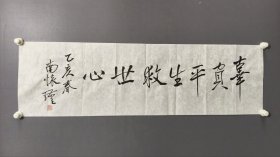 辜負平生救世心
乙亥春
南懷瑾